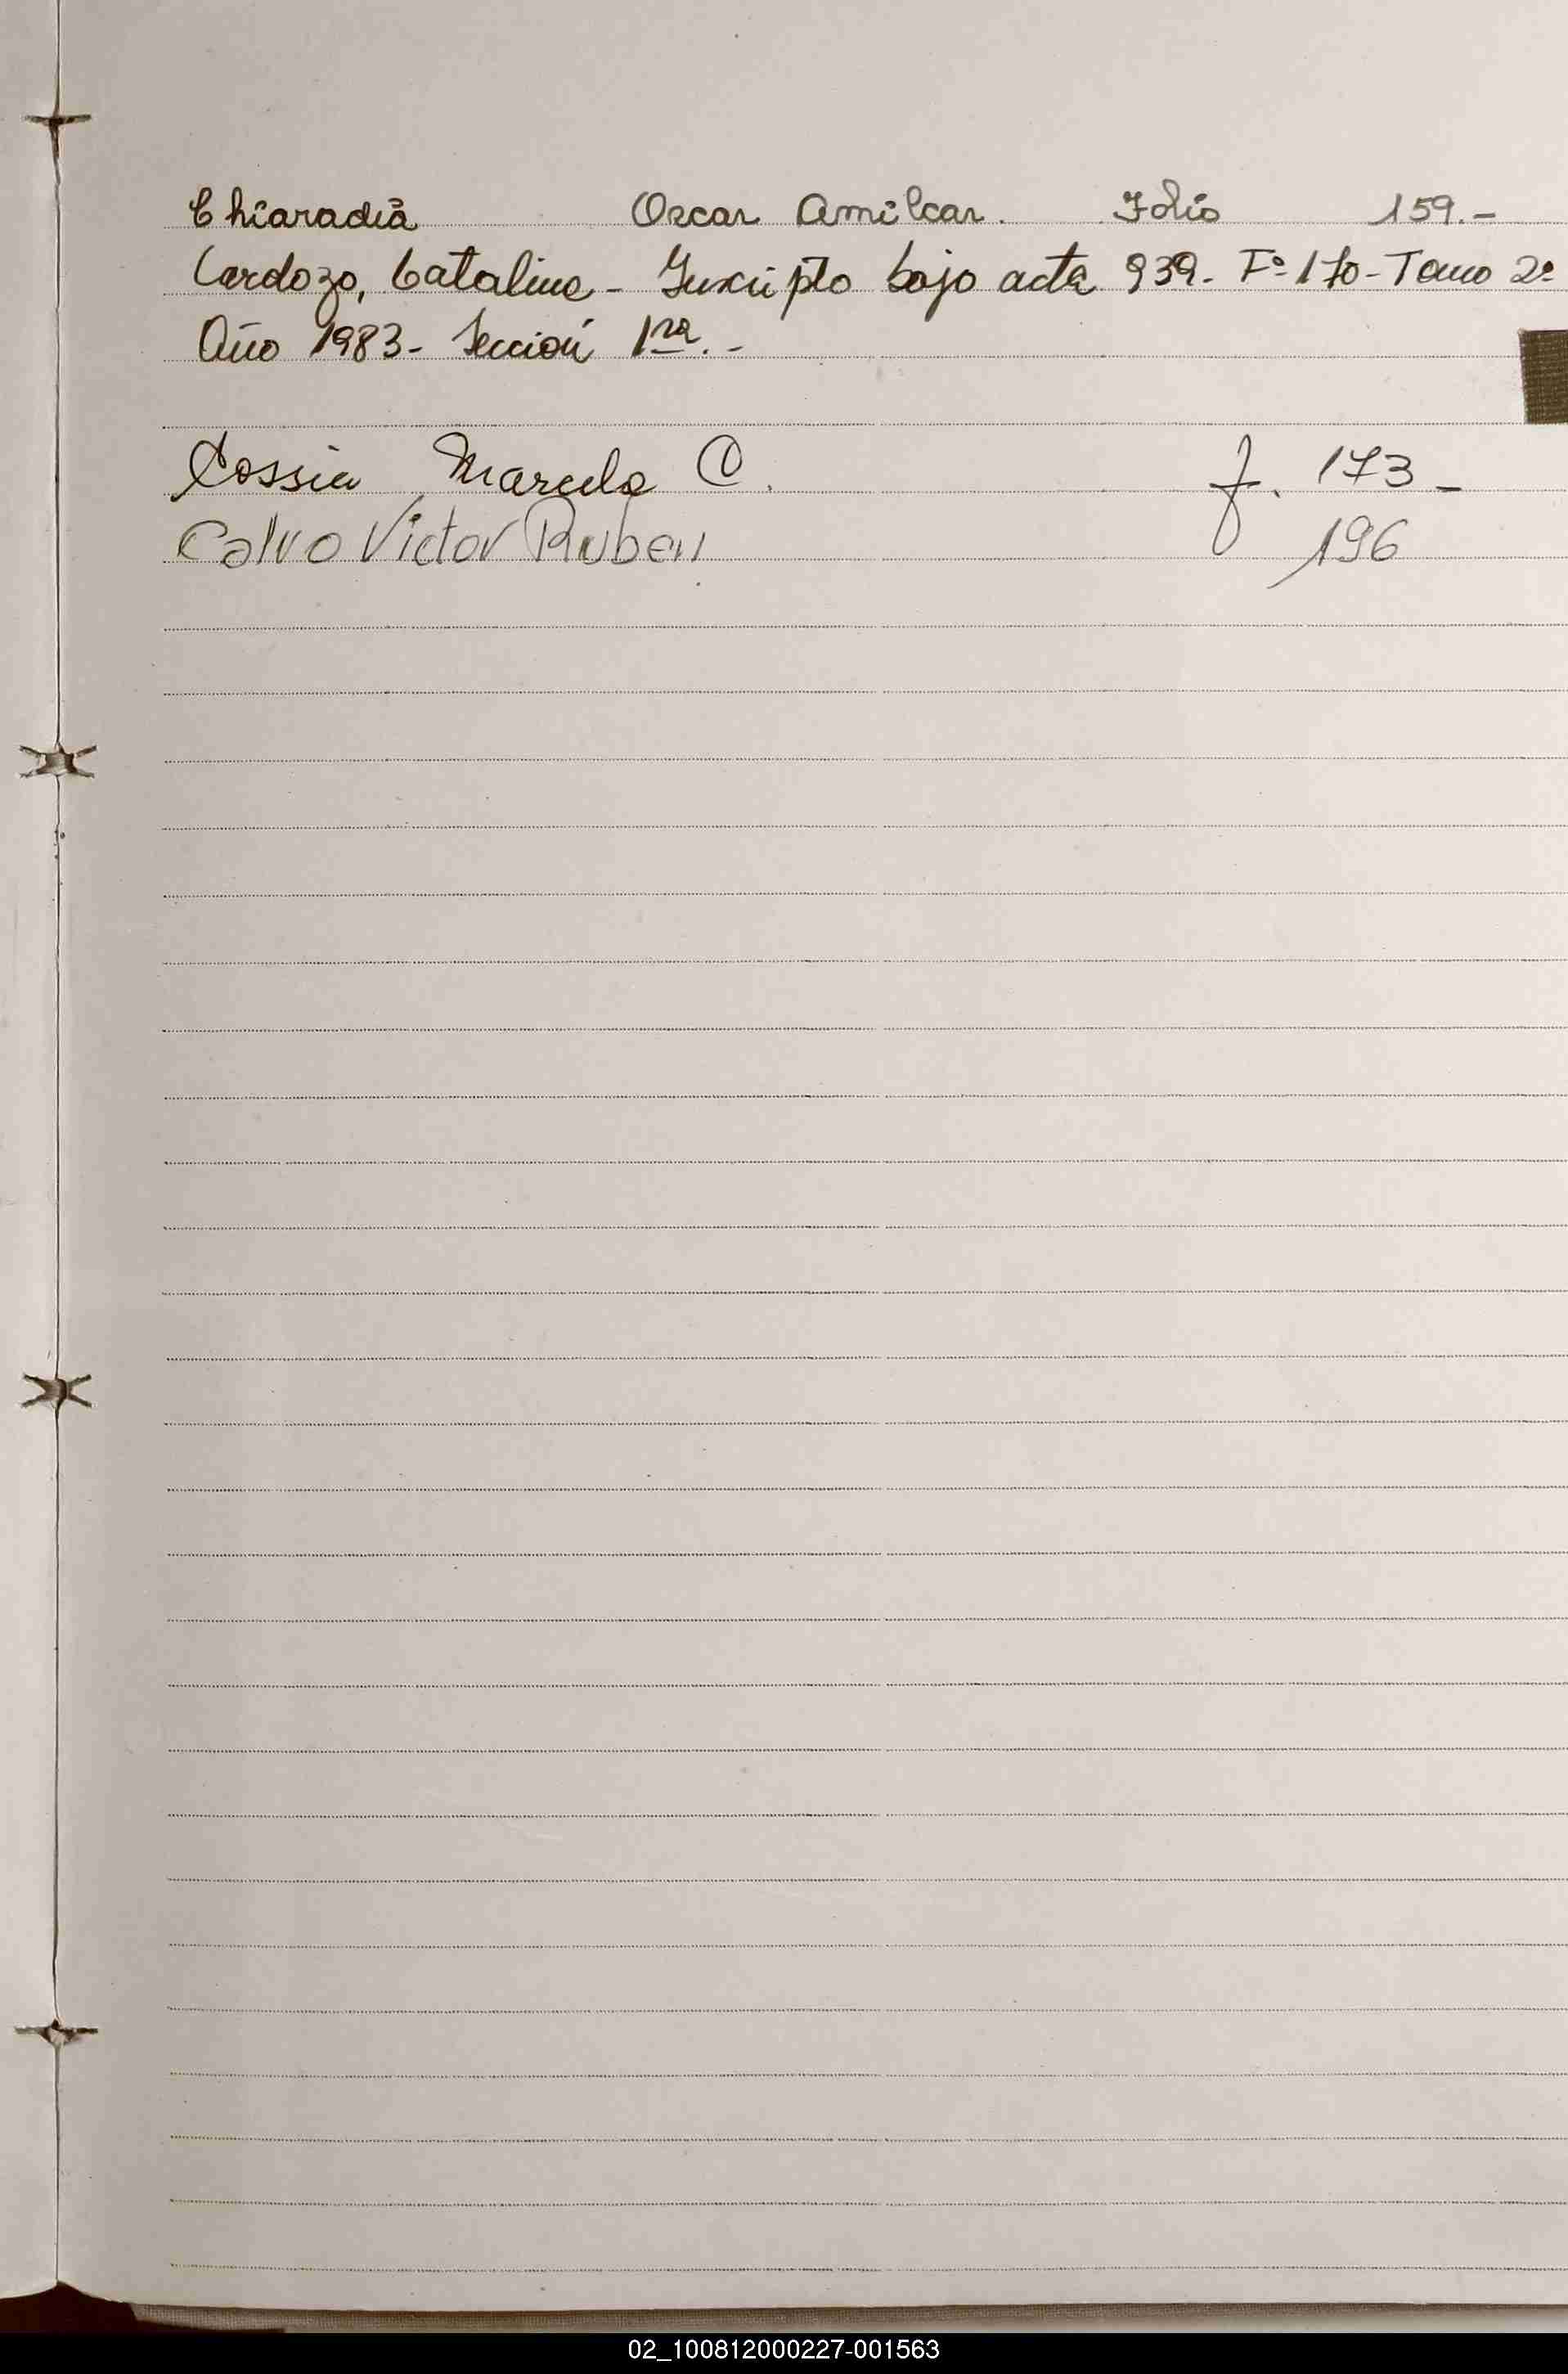 Chiaradia Oscar Amilcar. Folio 159.-
Cardozo, Catalina - Inscripto bajo acta 939. Fº 170 - Tomo 2º
Año 1983 - Sección 1ra. -
Cossia Marcelo O. f. 173 -
Calvo Victor Ruben 196
02_100812000227-001563